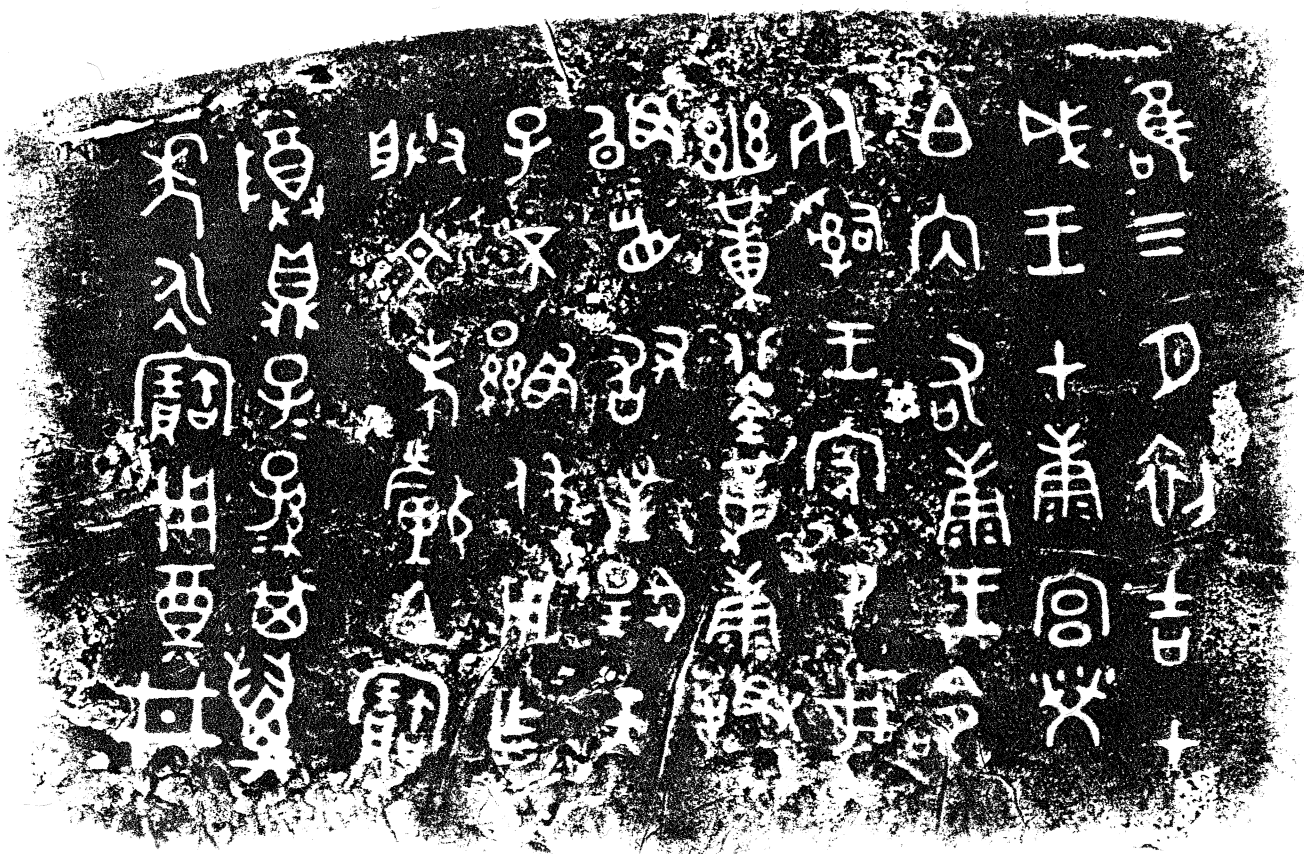 唯三月初吉甲
戌王才康宮𤇾
白內右康王命
死𤔲王家命女
幽黃鋚革康拜
𩒨首敢對揚天
子不顯休用乍
朕文考釐白寶
尊鼎子=孫=其萬
年永寶用奠井